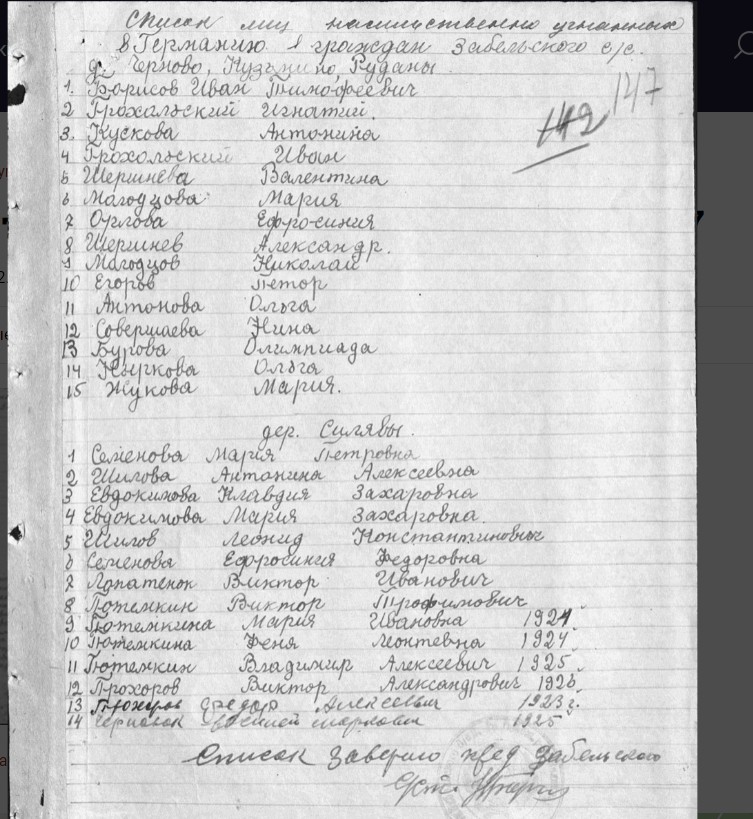 Список лиц насильственно угнанных
в Германию граждан Забельского с/с.
д. Черново, Кузьмино, Руданы.
147
142
1. Борисов Иван Тимофеевич
2 Грохальский Игнатий.
3. Кускова Антонина
4 Грохольский Иван
5 Шершнева Валентина
6 Магодцова Мария
7 Орлова Ефросиния
8 Шершнев Александр.
9 Магодцов Николай
10 Егоров Петор
11 Антонова Ольга
12 Совершаева Нина
13 Бурова Олимпиада
14 Ольга
15 Жукова Мария.
дер. Силявы.
1 Семенова Мария Петровна
2 Шилова Антанина Алексеевна
3 Евдокимова Клавдия Захаровна
4 Евдокимова Мария Захаровна.
5 Шилов Леонид Константинович
6 Семенова Ефросиния Федоровна
7 Лапатенок Виктор Иванович
8 Потемкин Виктор Трофимович
9 Потемкина Мария Ивановна 1924.
10 Потемкина Феня Леонтевна 1924.
11 Потемкин Владимир Алексеевич 1925.
12 Прохоров Виктор Александрович 1926
13 Прохоров Федор Алексеевич 1923 г.
14 Маркович 1925
Список заверяю пред Забельского